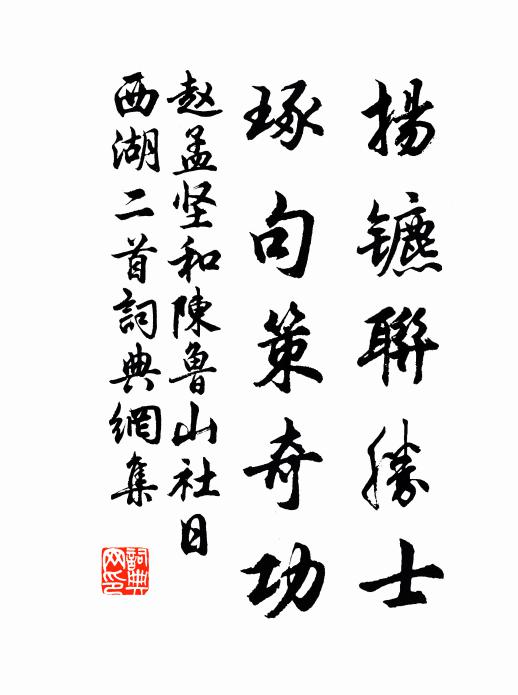 揚镳聯勝士
琢句策奇功
赵孟坚和陳魯山社日
西湖二首詞典網集
詞典網印